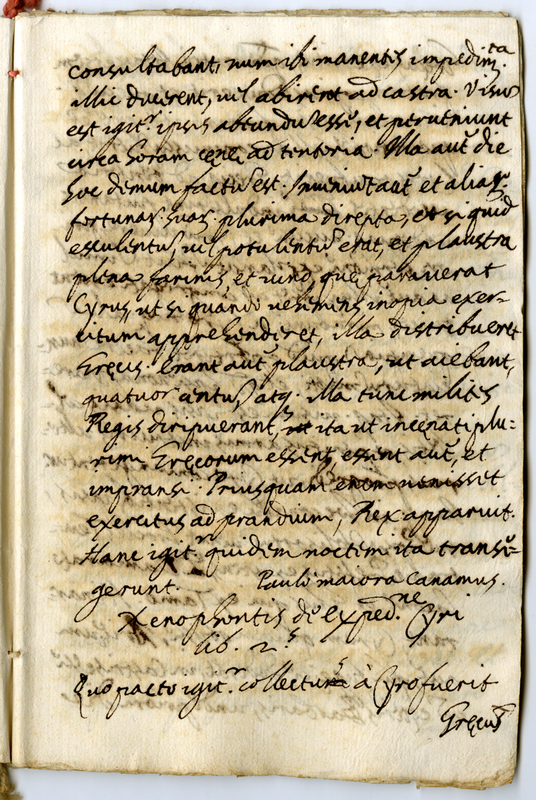 consultabant, num ibi manentes impedimta
illic ducerent, vel abirent ad castra. Visum
est igitr ipsis abeundũ esse, et perveniunt
circa horam cenę ad tentoria. Illa aut̃ die
hoc demum factũ est. Inveniũt aut̃ et aliar.
fortunar. suar. plurima direpta, et si quid
esculentũ vel potulentũ erat, et plaustra
plena farinis, et vino, quę paraverat
Cyrus, ut si quando vehemens inopia exer-
citum apprehenderet, illa distribueret
Gręcis. Erant aut̃ plaustra, ut aiebant,
quatuor centũ atq. Illa tunc milites
Regis diripuerant, ita ut incęnati plu-
rimi Gręcorum essent, essent aut̃, et
impransi. Priusquam enim venisset
exercitus ad prandium, Rex apparuit.
Hanc igitr quidem noctem ita transe-
gerunt. Paulo maiora canamus.
Xenophontis de exped.ne Cyri
lib. 2.s
Quo pacto igit.r collectus à Cyro fuerit
Gręcus